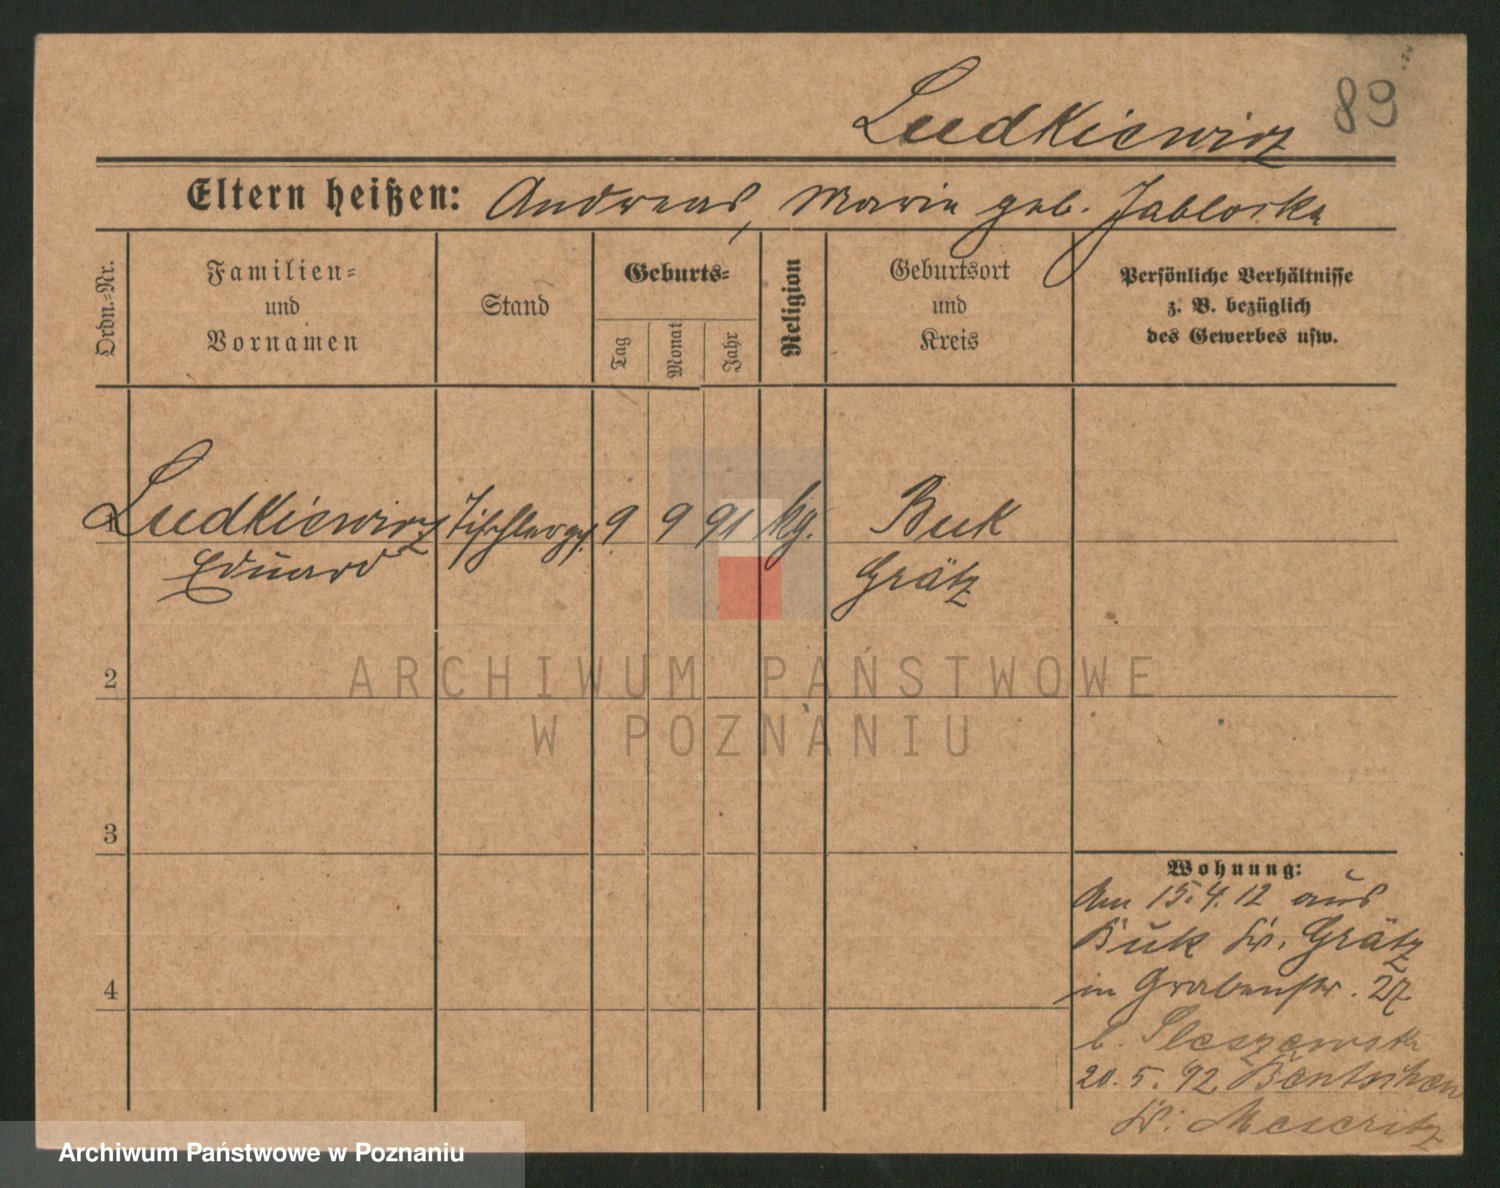 89
Ludkiewicz
Eltern heißen: Andreas, Marie geb. Jabloska
Ordn.-Nr.
Familien-
und
Vornamen
Stand
Geburts-
Tag
Monat
Jahr
Religion
Geburtsort
und
Kreis
Persönliche Verhältnisse
z. B. bezüglich
des Gewerbes usw.
1 Ludkiewicz Tischlerges. 9 9 91 kg. Buk
Eduard Grätz
2
ARCHIWUM PAŃSTWOWE
W POZNANIU
3
4
Wohnung:
Am 15.4.12 aus
Buk Kr. Grätz
in Grabenstr. 27
b. Sleszewska
20.5.12 Bentschen
Kr. Meseritz
Archiwum Państwowe w Poznaniu